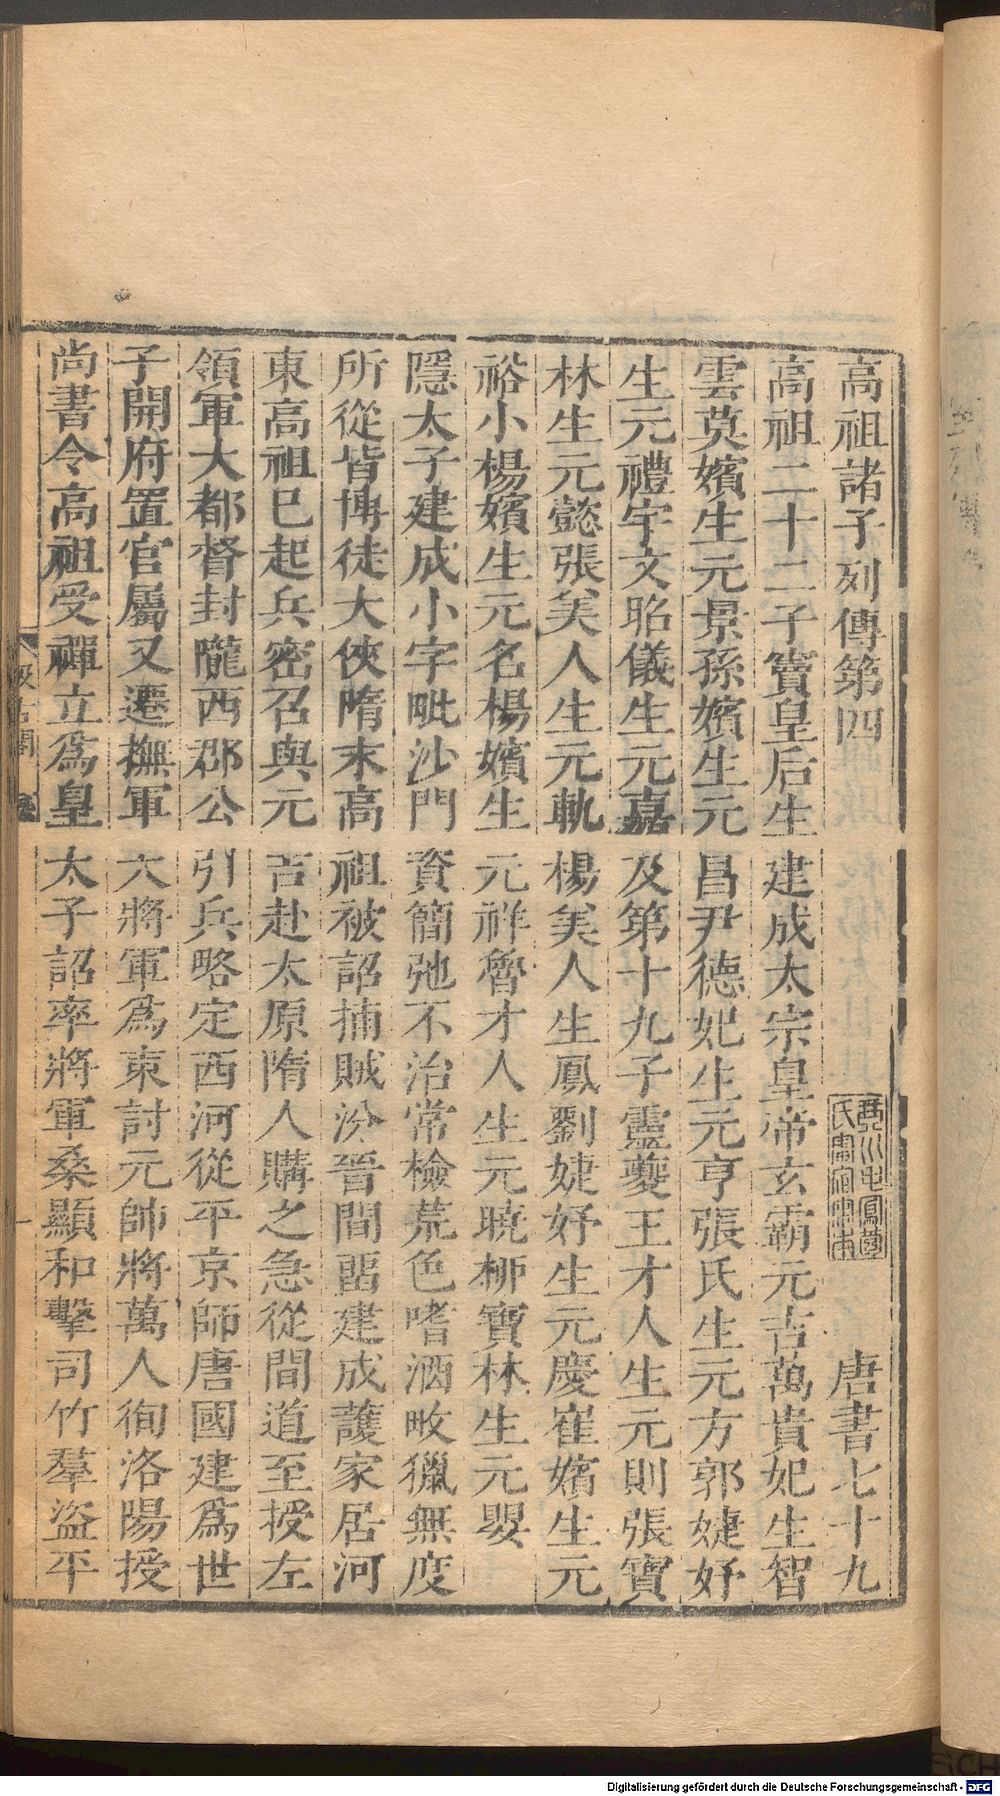 高祖諸子列傳第四 唐書七十九
高祖二十二子竇皇后生建成太宗皇帝玄霸元吉萬貴妃生智
雲莫嬪生元景孫嬪生元昌尹德妃生元亨張氏生元方郭婕妤
生元禮宇文昭儀生元嘉及第十九子靈夔王才人生元則張寶
林生元懿張美人生元軌楊美人生鳳劉婕妤生元慶崔嬪生元
裕小楊嬪生元名楊嬪生元祥魯才人生元曉柳寶林生元嬰
隱太子建成小字毗沙門資簡弛不治常檢荒色嗜酒畋獵無度
所從皆博徒大俠隋末高祖被詔捕賊汾晉間畱建成護家居河
東高祖已起兵密召與元吉赴太原隋人購之急從間道至授左
領軍大都督封隴西郡公引兵略定西河從平京師唐國建爲世
子開府置官屬又遷撫軍大將軍爲東討元帥將萬人徇洛陽授
尚書令高祖受禪立爲皇太子詔率將軍桑顯和擊司竹羣盜平
汲古閣
一
Digitalisierung gefördert durch die Deutsche Forschungsgemeinschaft - DFG